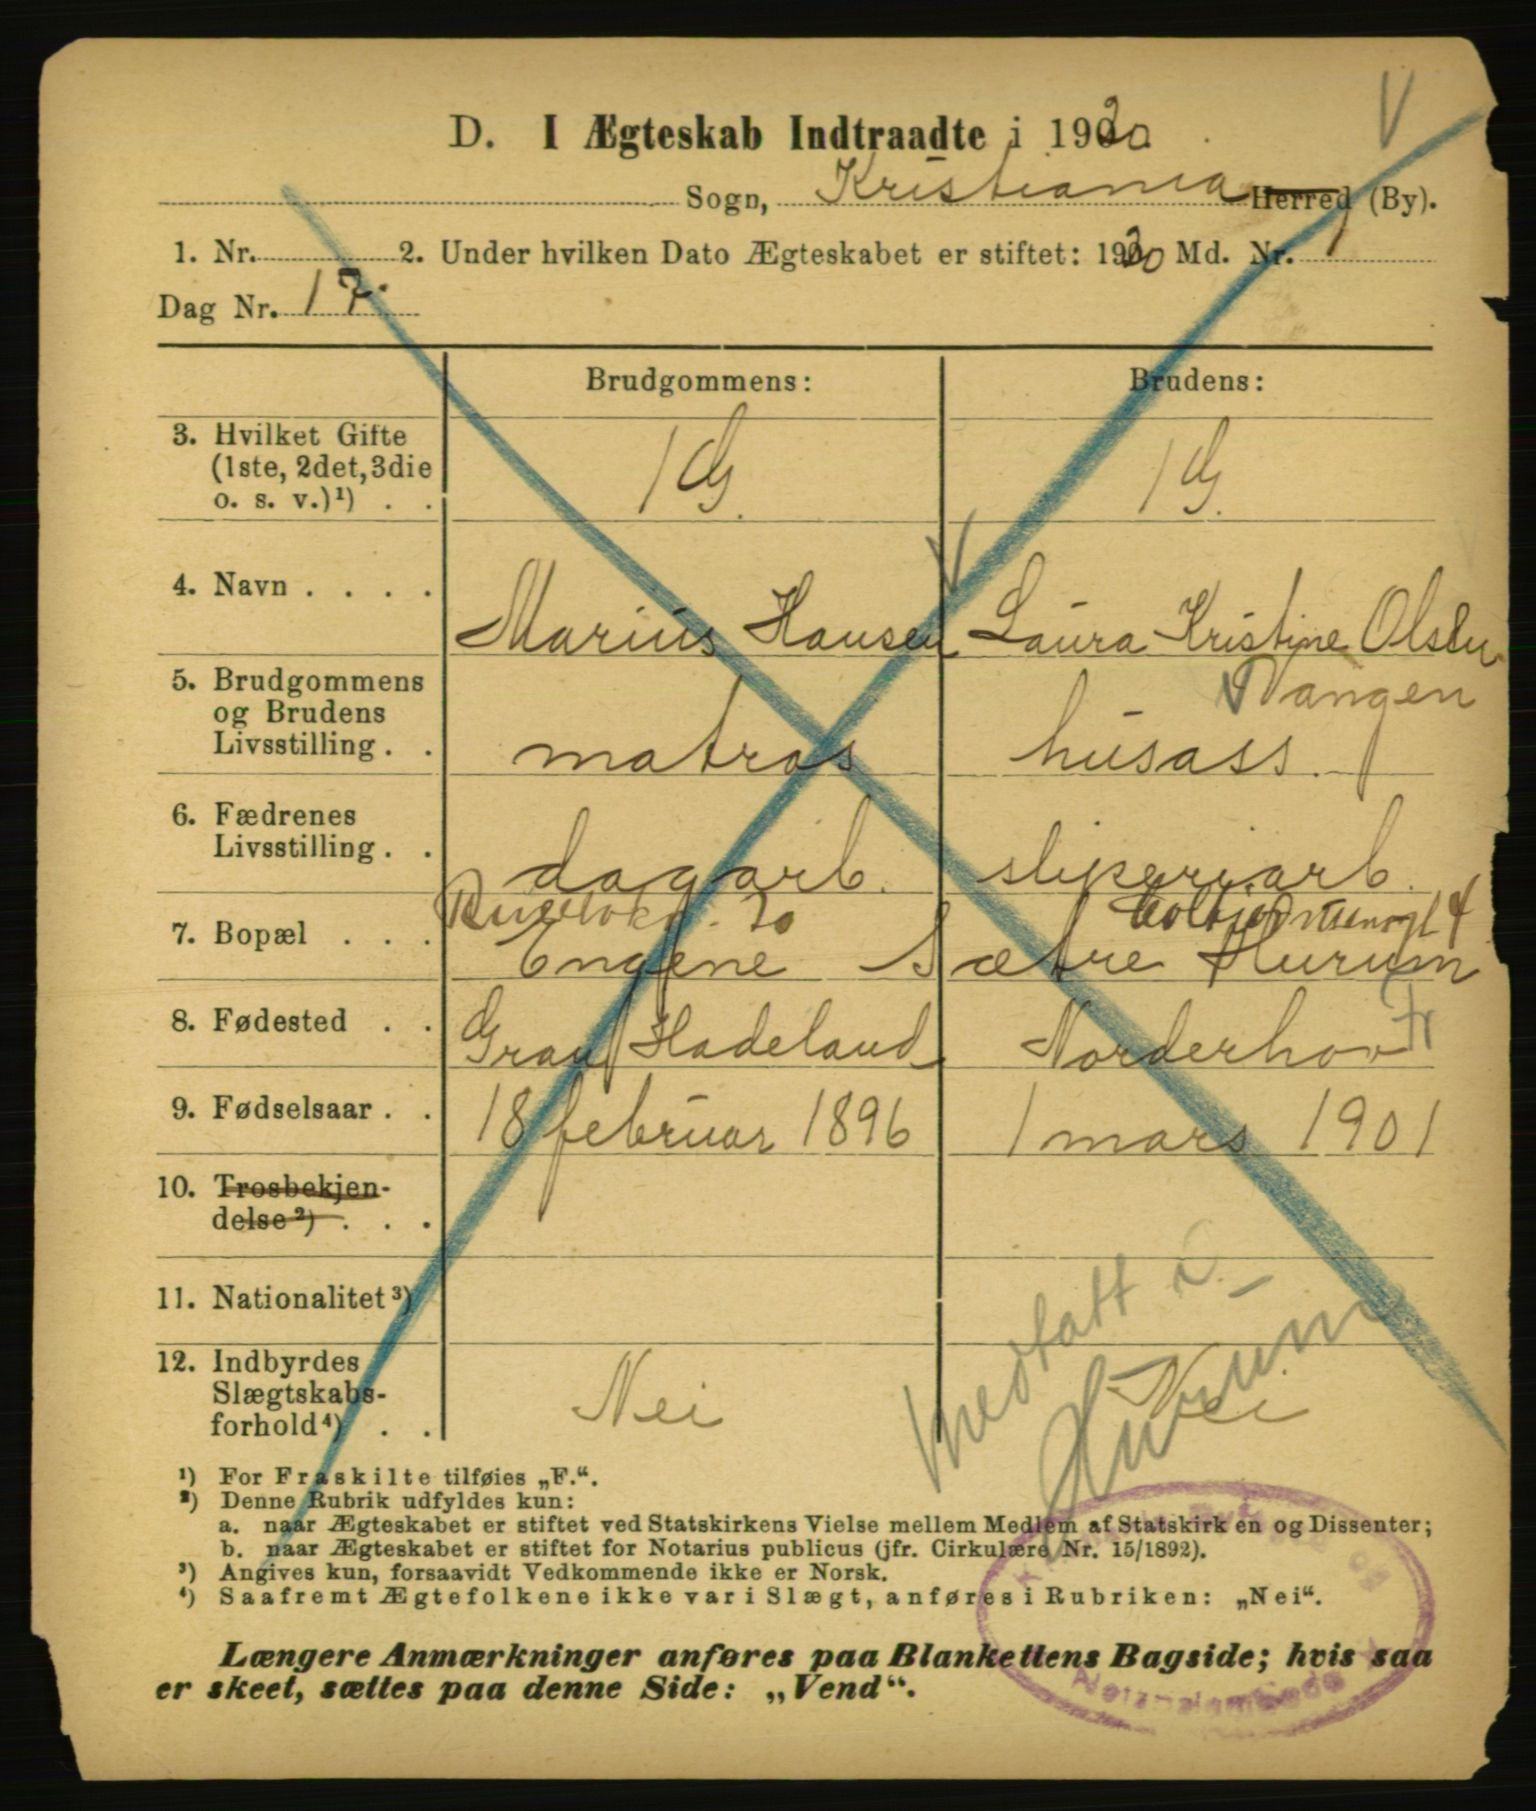 D. I Ægteskab Indtraadte i 1920
Sogn, Kristiania Herred (By).
1. Nr. 2. Under hvilken Dato Ægteskabet er stiftet: 1920 Md. Nr. 1
Dag Nr. 17.
Brudgommens: Brudens:
3. Hvilket Gifte
(1ste, 2det, 3die
o. s. v.)¹) . . 1 G. 1 G.
4. Navn . . . . Marius Hansen Laura Kristine Olsen
Vangen
5. Brudgommens
og Brudens
Livsstilling . . matros husass.
6. Fædrenes
Livsstilling . . dagarb. sliperiarb.
7. Bopæl . . . Engene Sætre Hurum
8. Fødested . . Gran Hadeland Norderhov
9. Fødselsaar . . 18 februar 1896 1 mars 1901
10. Trosbekjen-
delse²) . . .
11. Nationalitet³)
12. Indbyrdes
Slægtskabs-
forhold⁴) . . Nei Nei
Medtatt i
Hurum
¹) For Fraskilte tilføies „F.“.
²) Denne Rubrik udfyldes kun:
a. naar Ægteskabet er stiftet ved Statskirkens Vielse mellem Medlem af Statskirken og Dissenter;
b. naar Ægteskabet er stiftet for Notarius publicus (jfr. Cirkulære Nr. 15/1892).
³) Angives kun, forsaavidt Vedkommende ikke er Norsk.
⁴) Saafremt Ægtefolkene ikke var i Slægt, anføres i Rubriken: „Nei“.
Længere Anmærkninger anføres paa Blankettens Bagside; hvis saa
er skeet, sættes paa denne Side: „Vend“.